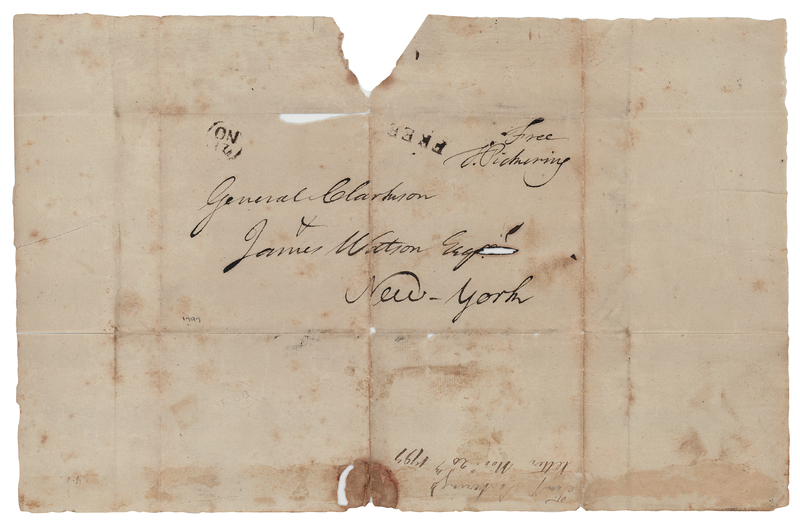 NO
FREE
Free
T. Pickering
General Clarkson
&
James Watson Esqr.
New-York
1797
Pickering's
letter Nov. 20th 1797